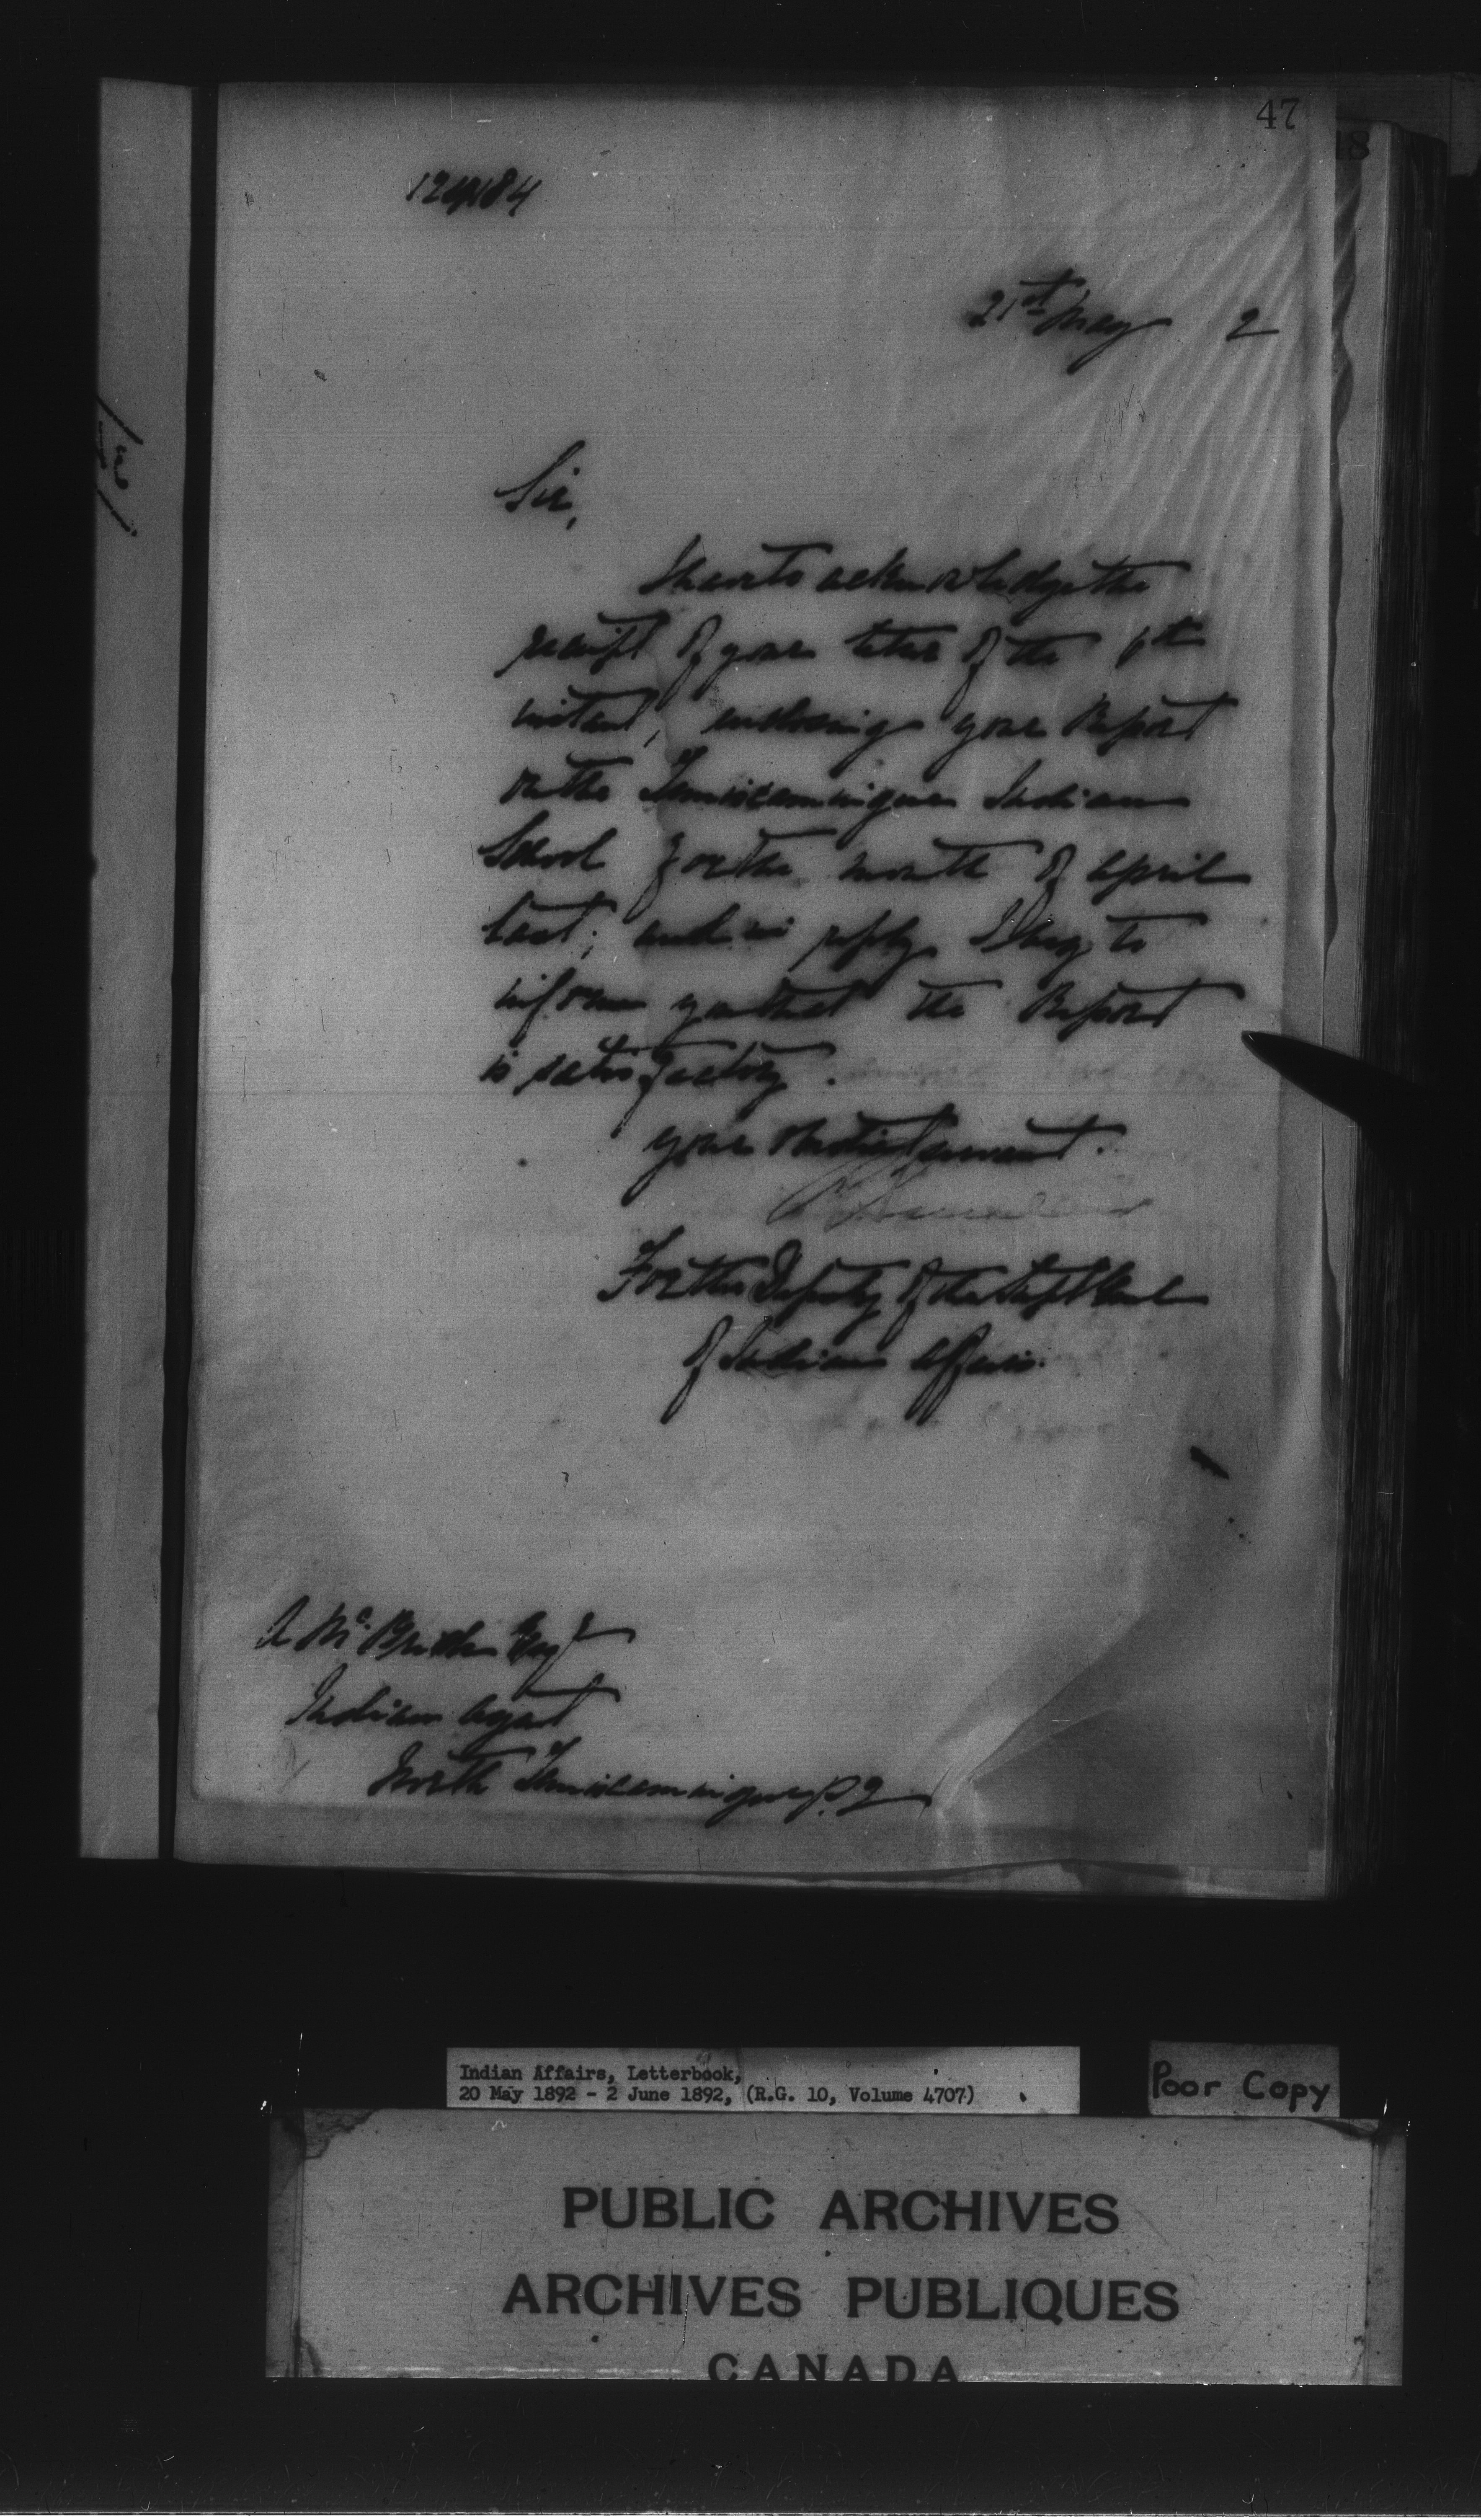 47
21st May 2
Sir,
I have to acknowledge the
receipt of your letter of the 6th
instant, enclosing your Report
on the Temiscamingue Indian
School for the month of April
last; and in reply I beg to
inform you that the Report
is satisfactory.
your obedient servant.
For the Deputy of the Supt Genl
of Indian Affairs.
A McBride Esqr
Indian Agent
North Temiscamingue, P.Q
Indian Affairs, Letterbook,
20 May 1892 - 2 June 1892, (R.G. 10, Volume 4707)
Poor Copy
PUBLIC ARCHIVES
ARCHIVES PUBLIQUES
CANADA